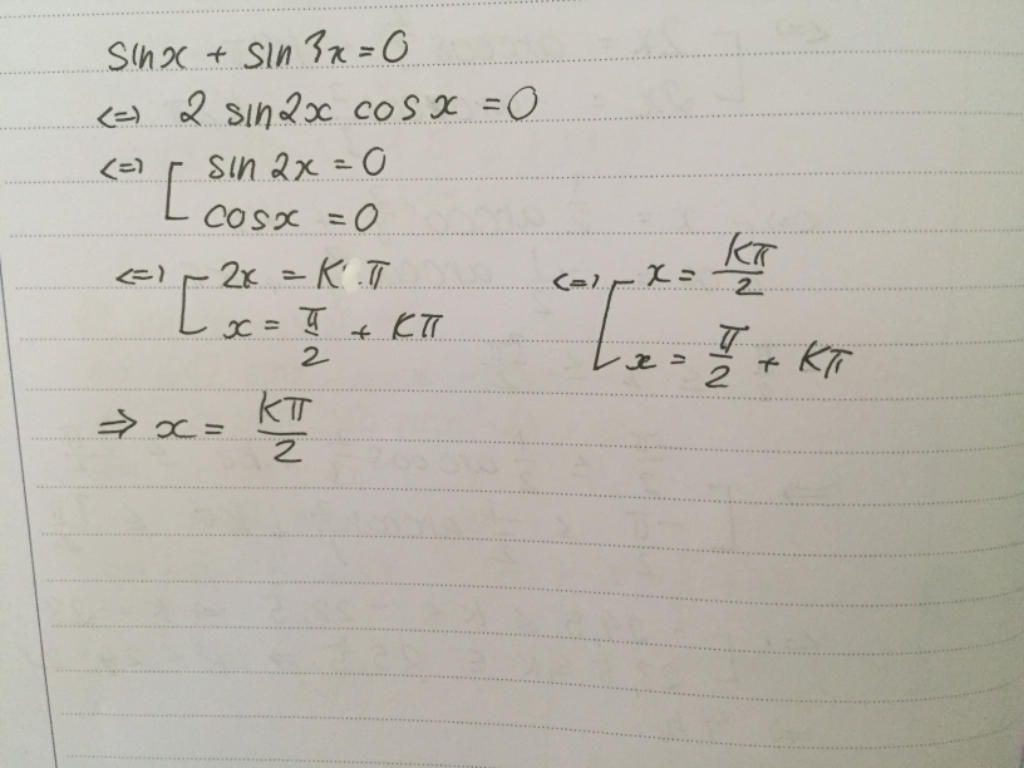 sinx + sin 3x = 0
<=> 2 sin2x cosx = 0
<=> [ sin 2x = 0
cosx = 0
<=> [ 2x = Kπ <=> [ x = Kπ/2
x = π/2 + Kπ x = π/2 + Kπ
=> x = Kπ/2